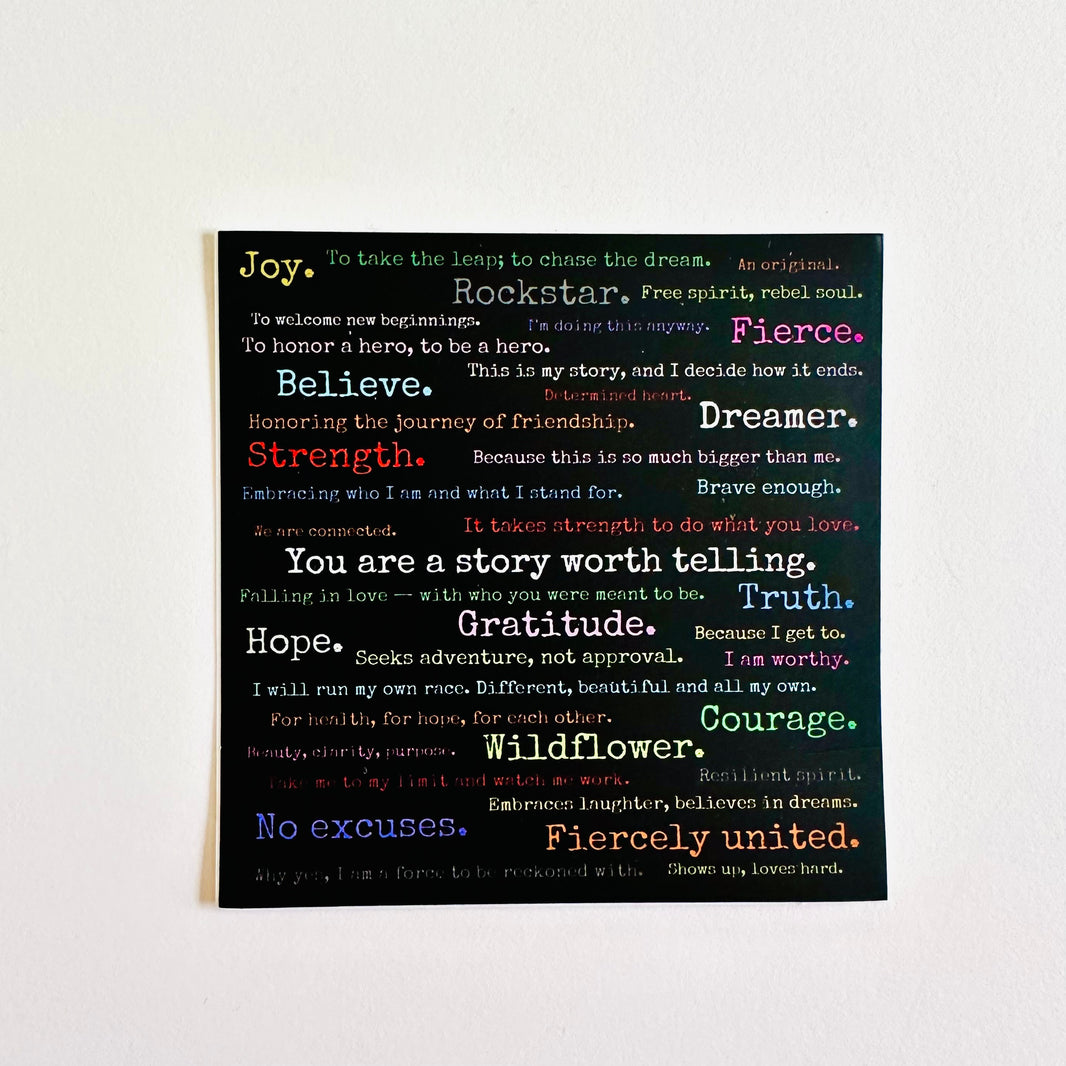 Joy. To take the leap; to chase the dream. An original.
Rockstar. Free spirit, rebel soul.
To welcome new beginnings. I'm doing this anyway. Fierce.
To honor a hero, to be a hero.
Believe. This is my story, and I decide how it ends.
Determined heart.
Honoring the journey of friendship. Dreamer.
Strength. Because this is so much bigger than me.
Embracing who I am and what I stand for. Brave enough.
We are connected. It takes strength to do what you love.
You are a story worth telling.
Falling in love — with who you were meant to be. Truth.
Hope. Gratitude. Because I get to.
Seeks adventure, not approval. I am worthy.
I will run my own race. Different, beautiful and all my own.
For health, for hope, for each other. Courage.
Beauty, clarity, purpose. Wildflower.
Take me to my limit and watch me work. Resilient spirit.
Embraces laughter, believes in dreams.
No excuses. Fiercely united.
Why yes, I am a force to be reckoned with. Shows up, loves hard.